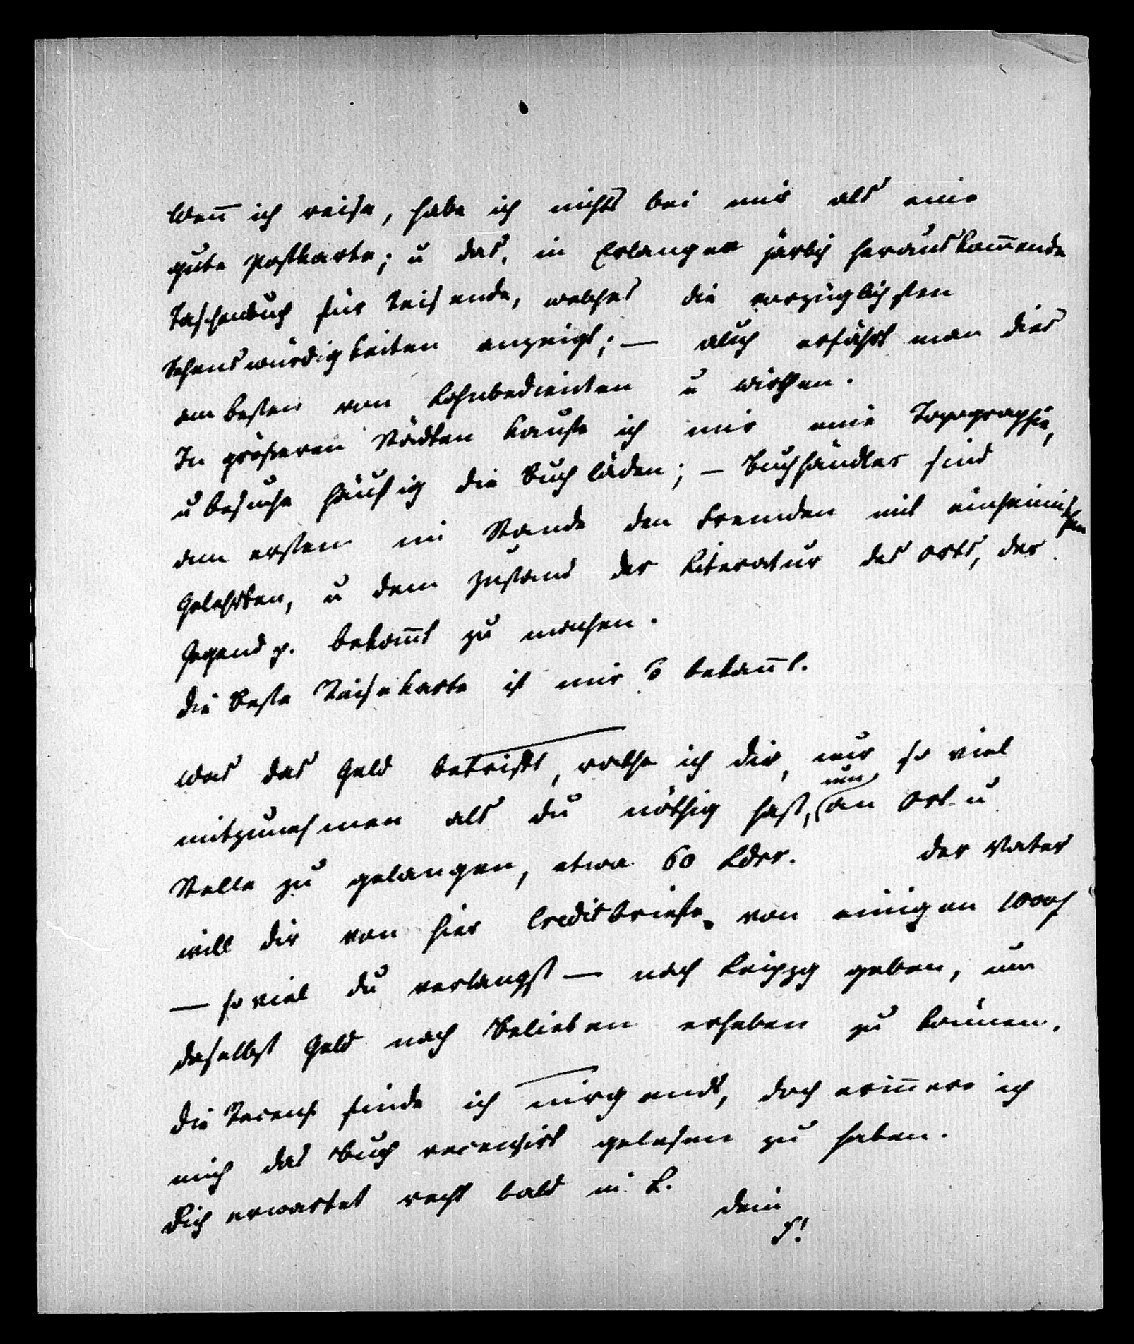 Wen̅ ich reise, habe ich nichts bei mir als eine
gute Postkarte; u das, in Erlangen järlich herauskom̅ende
Taschenbuch für Reisende, welches die vorzüglichsten
Sehenswürdigkeiten anzeigt; — auch erfährt man dies
am besten von Lohnbedienten u Wirthen.
In größeren Städten kaufe ich mir eine Topographie,
u besuche häufig die Buchläden; — Buchhändler sind
am ersten im Stande den Fremden mit einheimischen
Gelehrten, u dem Zustand der Literatur des Orts, der
Gegend p. bekan̅t zu machen.
Die beste Reisekarte ist mir bekan̅t.
Was das Geld betrifft, rathe ich dir, nur so viel
mitzunehmen als du nöthig hast, um an Ort u
Stelle zu gelangen, etwa 60 Ldor. Der Vater
will dir von hier Creditbriefe von einigen 1000
— so viel du verlangst — nach Leipzg geben, um
daselbst Geld nach Belieben erheben zu können.
Die Recens finde ich nirgends, doch erin̅ere ich
mich das Buch recensirt gelesen zu haben.
Dich erwartet recht bald in L.
Dein
F!